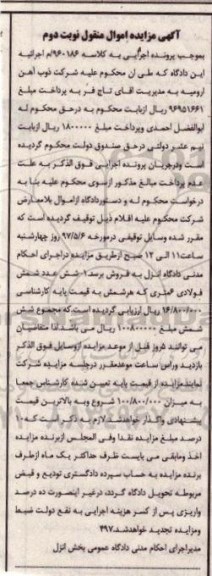 آگهی مزایده اموال منقول نوبت دوم
بموجب پرونده اجرایی به کلاسه ۹۶۰۱۸۶/م اجرائیه
این دادگاه که طی ان محکوم علیه شرکت ذوب آهن
ارومیه به مدیریت اقای تاج فر به پرداخت مبلغ
۹۶۹۵۱۶۶۱ ریال ازبابت محکوم به درحق محکوم له
ابوالفضل احمدی وپرداخت مبلغ ۱۸۰۰۰۰۰ ریال ازبابت
نیم عشر دولتی درحق صندوق دولت محکوم گردیده
است ودرجریان پرونده اجرایی فوق الذکر به علت
عدم پرداخت مبالغ مذکور ازسوی محکوم علیه بنا به
درخواست محکوم له و دستوردادگاه ازاموال بلامعارض
شرکت محکوم علیه اقلام ذیل توقیف گردیده است که
مقرر شده وسایل توقیفی درمورخه ۹۷/۵/۶ روز چهارشنبه
ساعت ۱۱ الی ۱۲ صبح ازطریق مزایده دراجرای احکام
مدنی دادگاه انزل به فروش برسد ۱- شش عدد شمش
فولادی ۶متری که هرشمش به قیمت پایه کارشناسی
۱۶/۸۰۰/۰۰۰ ریال ارزیابی گردیده است که مجموع شش
شمش مبلغ ۱۰۰/۸۰۰/۰۰۰ ریال می باشد لذا متقاضیان
می توانند ۵روز قبل از موعد مزایده ازوسایل فوق الذکر
بازدید وراس ساعت موعدمقرر درجلسه مزایده شرکت
نمایند مزایده از قیمت پایه تعیین شده کارشناس جمعا
به میزان ۱۰۰/۸۰۰/۰۰۰ شروع وبه بالاترین قیمت
پیشنهادی واگذار خواهدشد لازم به ذکر است که
درصد مبلغ مزایده نقدا وفی المجلس ازبرنده مزایده
اخذ ومابقی می بایست ظرف حداکثر یک ماه ازطرف
برنده مزایده به حساب سپرده دادگستری تودیع و قبض
مربوطه تحویل دادگاه گردد، درغیر اینصورت ده درصد
واریزی پس از کسر هزینه اجرایی به نفع دولت ضبط
ومزایده تجدید خواهدشد.۴۹۷
مدیراجرای احکام مدنی دادگاه عمومی بخش انزل